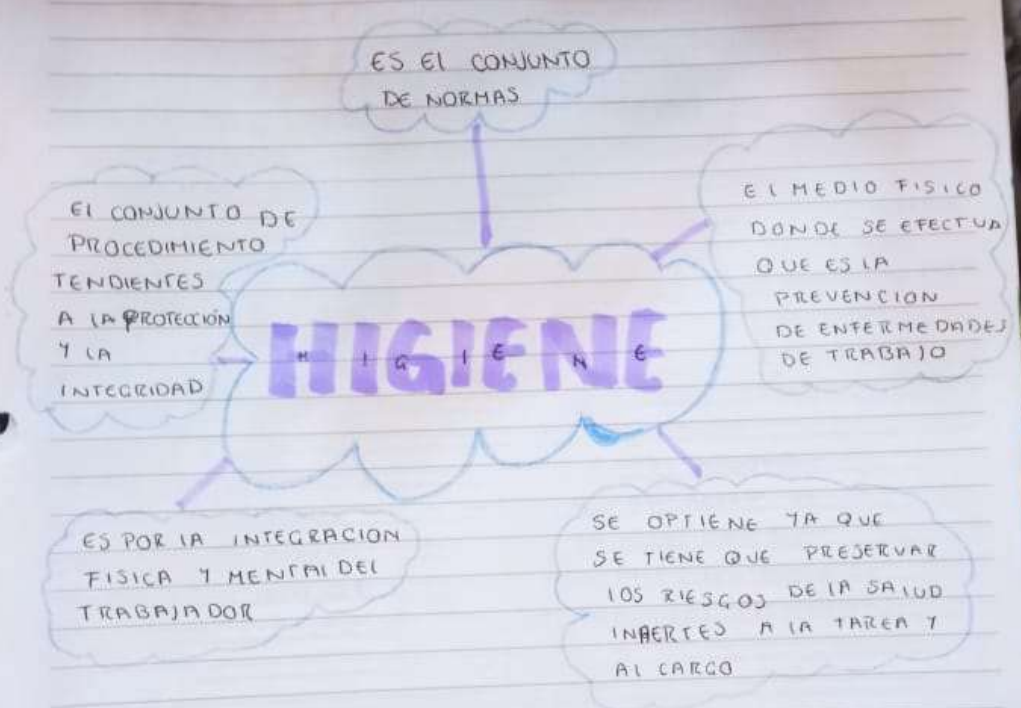 ES El CONJUNTO
DE NORMAS
El CONJUNTO DE
PROCEDIMIENTO
TENDIENTES
A LA PROTECCIÓN
Y LA
INTEGRIDAD
HIGIENE
H I G I E N E
El MEDIO FISICO
DONDE SE EFECTUA
QUE ES LA
PREVENCION
DE ENFERMEDADES
DE TRABAJO
ES POR LA INTEGRACION
FISICA Y MENTAl DEl
TRABAJADOR
SE OPTIENE YA QUE
SE TIENE QUE PRESERVAR
lOS RIESGOS DE lA SAlUD
INHERTES A lA TAREA Y
Al CARGO